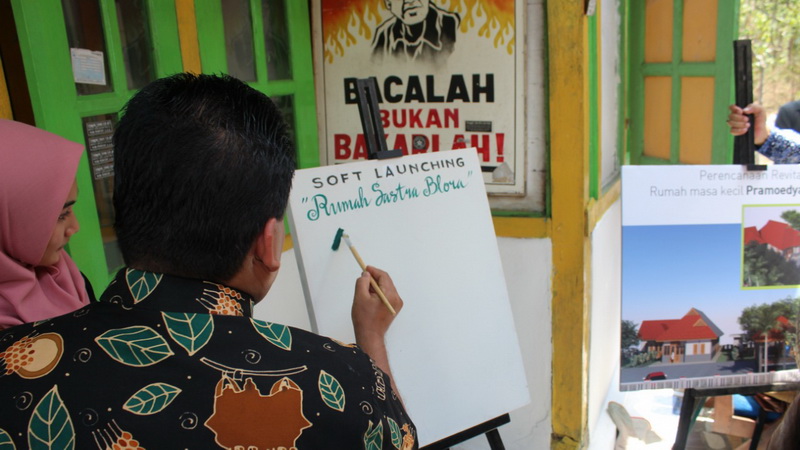 BACALAH
BUKAN
BAKARLAH!
SOFT LAUNCHING
"Rumah Sastra Blora"
Perencanaan Revita
Rumah masa kecil Pramoedya